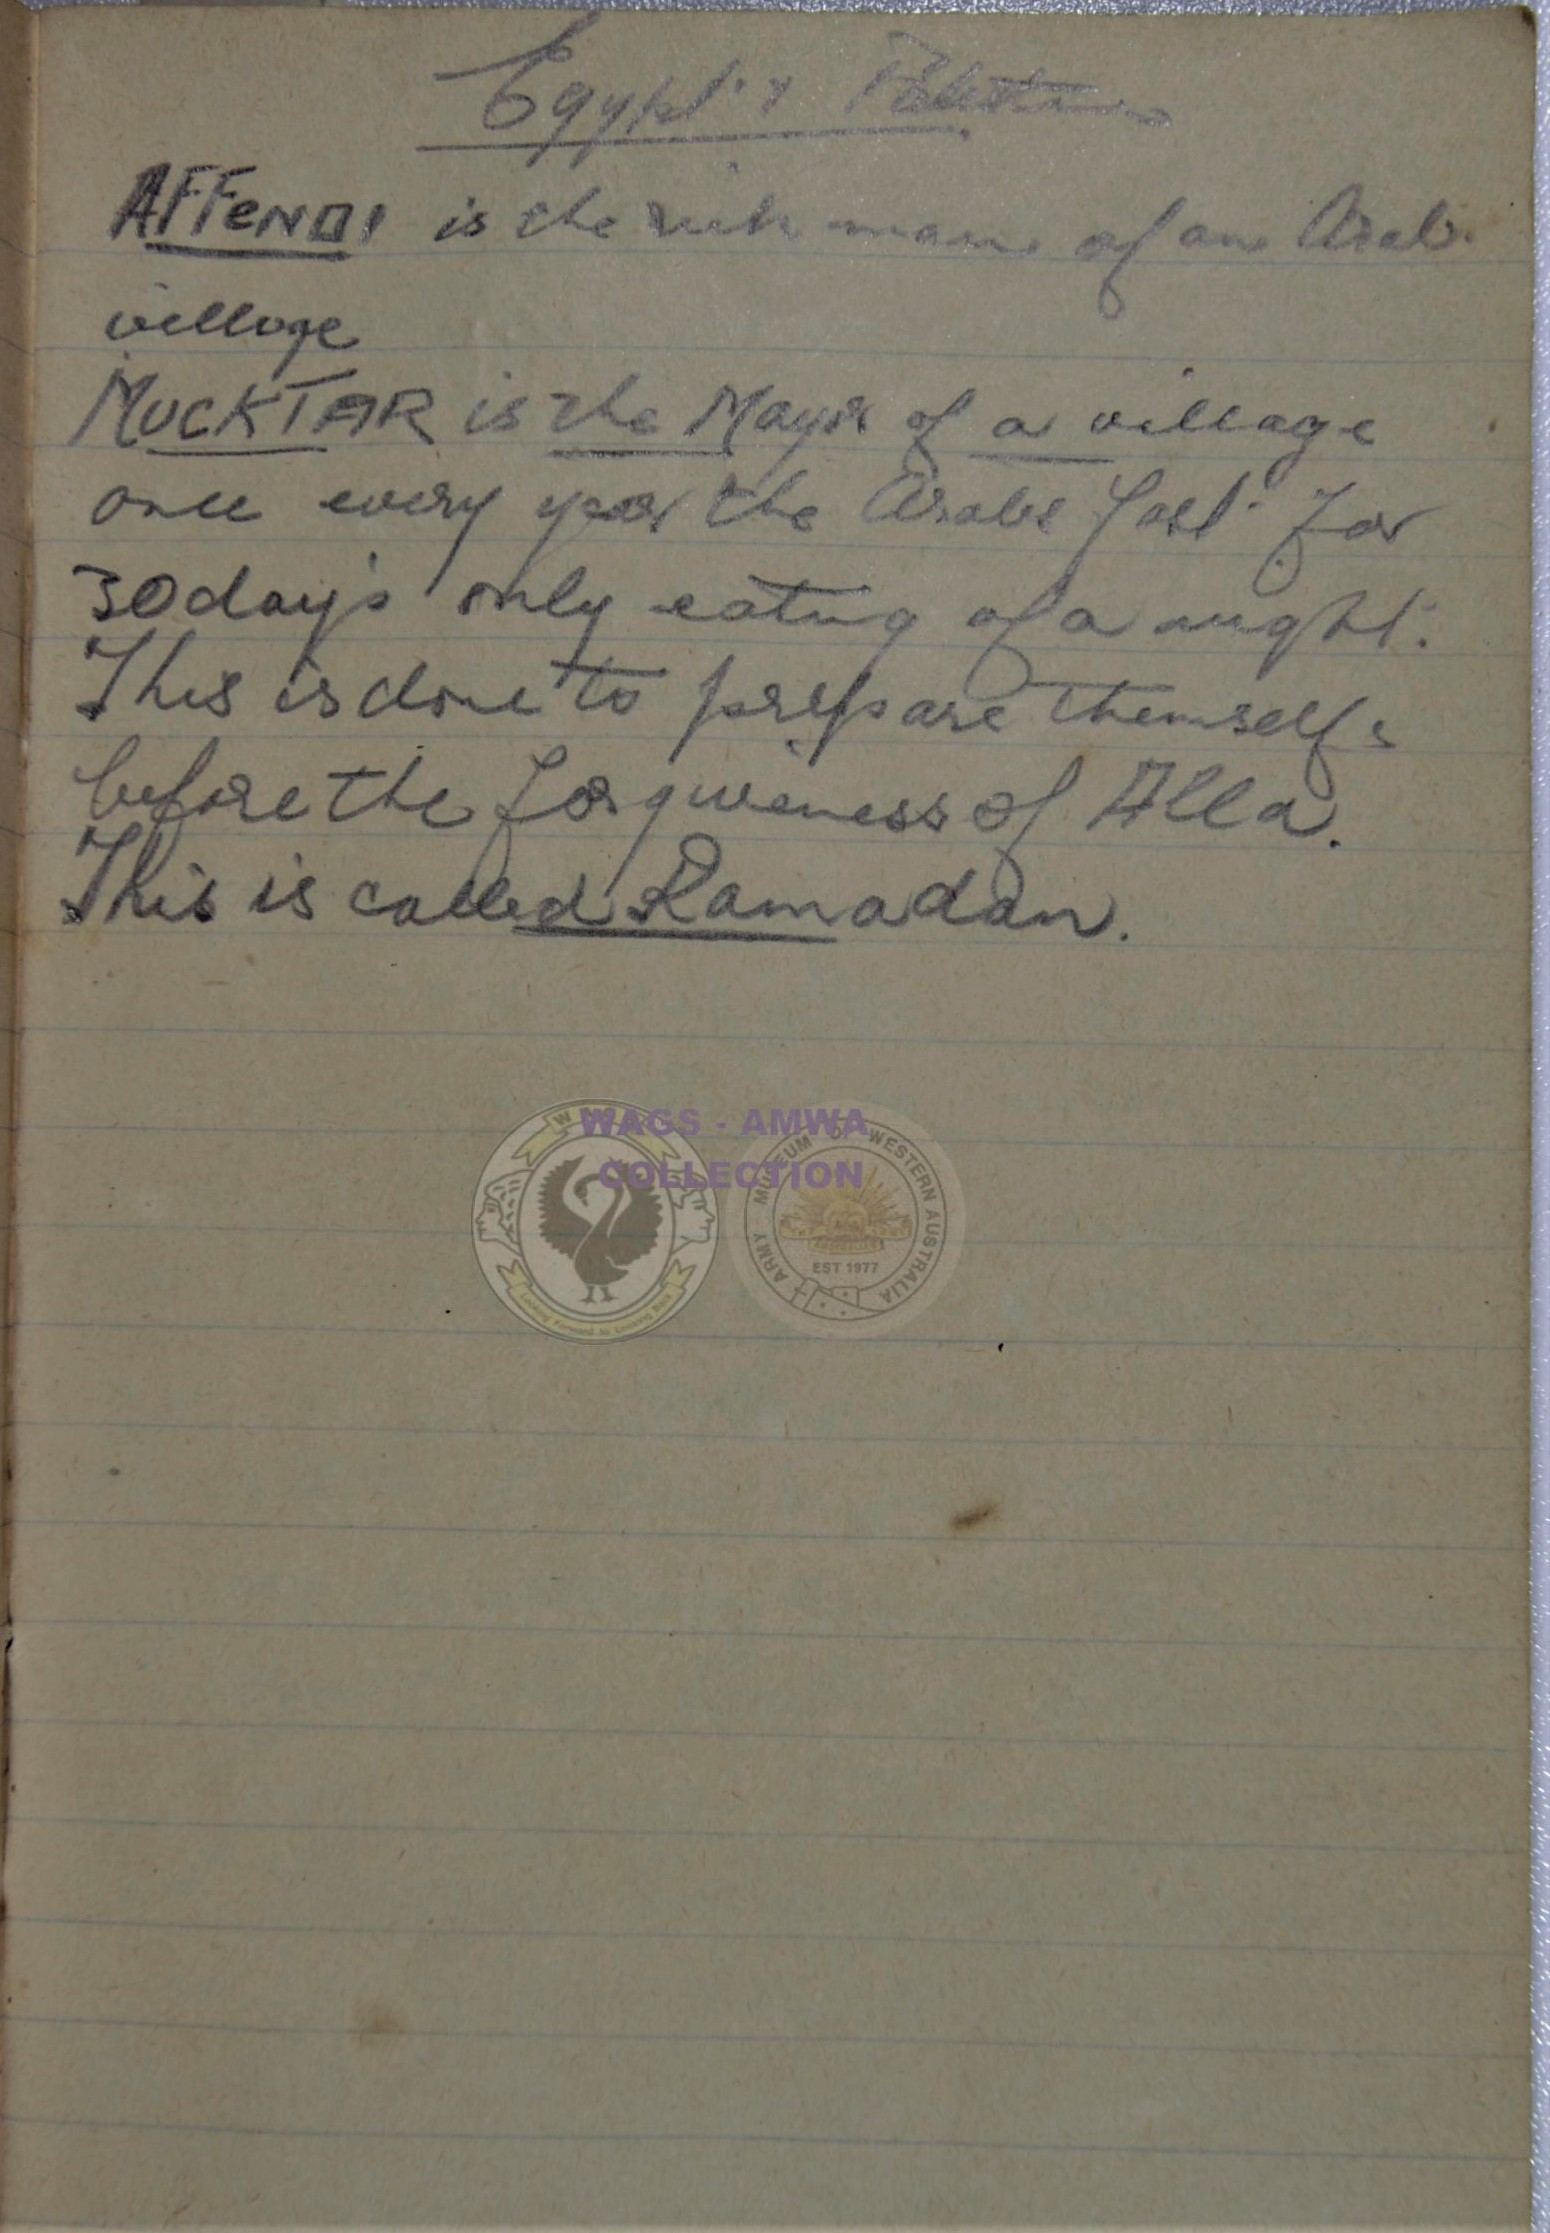 Egypt & Palestine
AFFENDI is the rich man of an Arab
village
MUCKTAR is the Mayor of a village
once every year the Arabs fast for
30 days only eating of a night.
This is done to prepare themselfs
before the forgiveness of Alla.
This is called Ramadan.
WAGS - AMWA
COLLECTION
ARMY MUSEUM OF WESTERN AUSTRALIA
EST 1977
Looking Forward to Looking Back